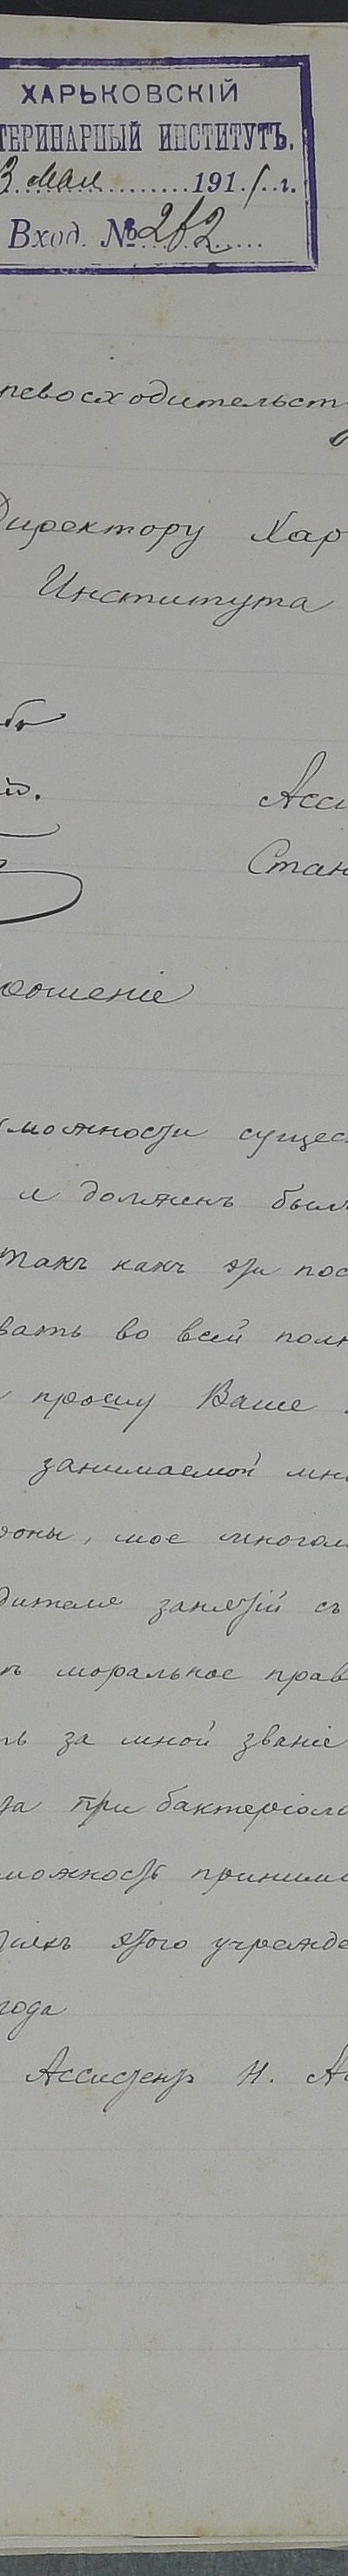 ХАРЬКОВСКІЙ
ТЕРИНАРНЫЙ ИНСТИТУТЪ.
3 мая 1911 г.
Вход. № 262
ревосходительст
Директору Хар
Института
ій.
Асси
Стан
рошеніе
зможности сущес
я долженъ былъ
такъ какъ эти пос
вать во всей полн
прошу Ваше
занимаемой мно
роны, мое многол
дителя занятій съ
моральное прав
ть за мной званіе
та при бактеріоло
зможность приним
тіяхъ этого учрежде
года
Ассистентъ Н.